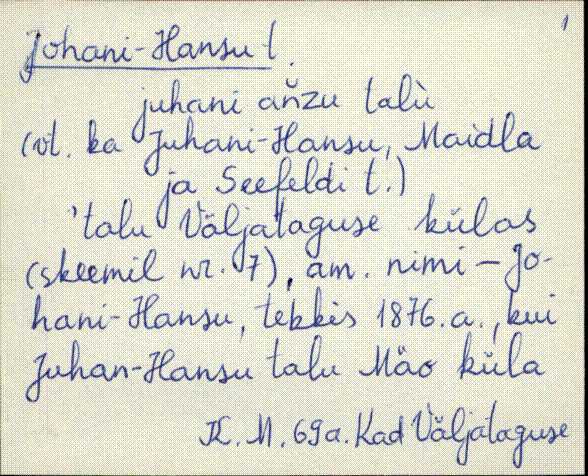 1
Johani-Hansu t.
juhani ańzu talù
(vt. ka Juhani-Hansu, Maidla
ja Seefeldi t.)
'talu Väljataguse külas
(skeemil nr. 7), am. nimi – Jo-
hani-Hansu, tekkis 1876.a., kui
Juhan-Hansu talu Mäo küla
K. M. 69a. Kad Väljataguse